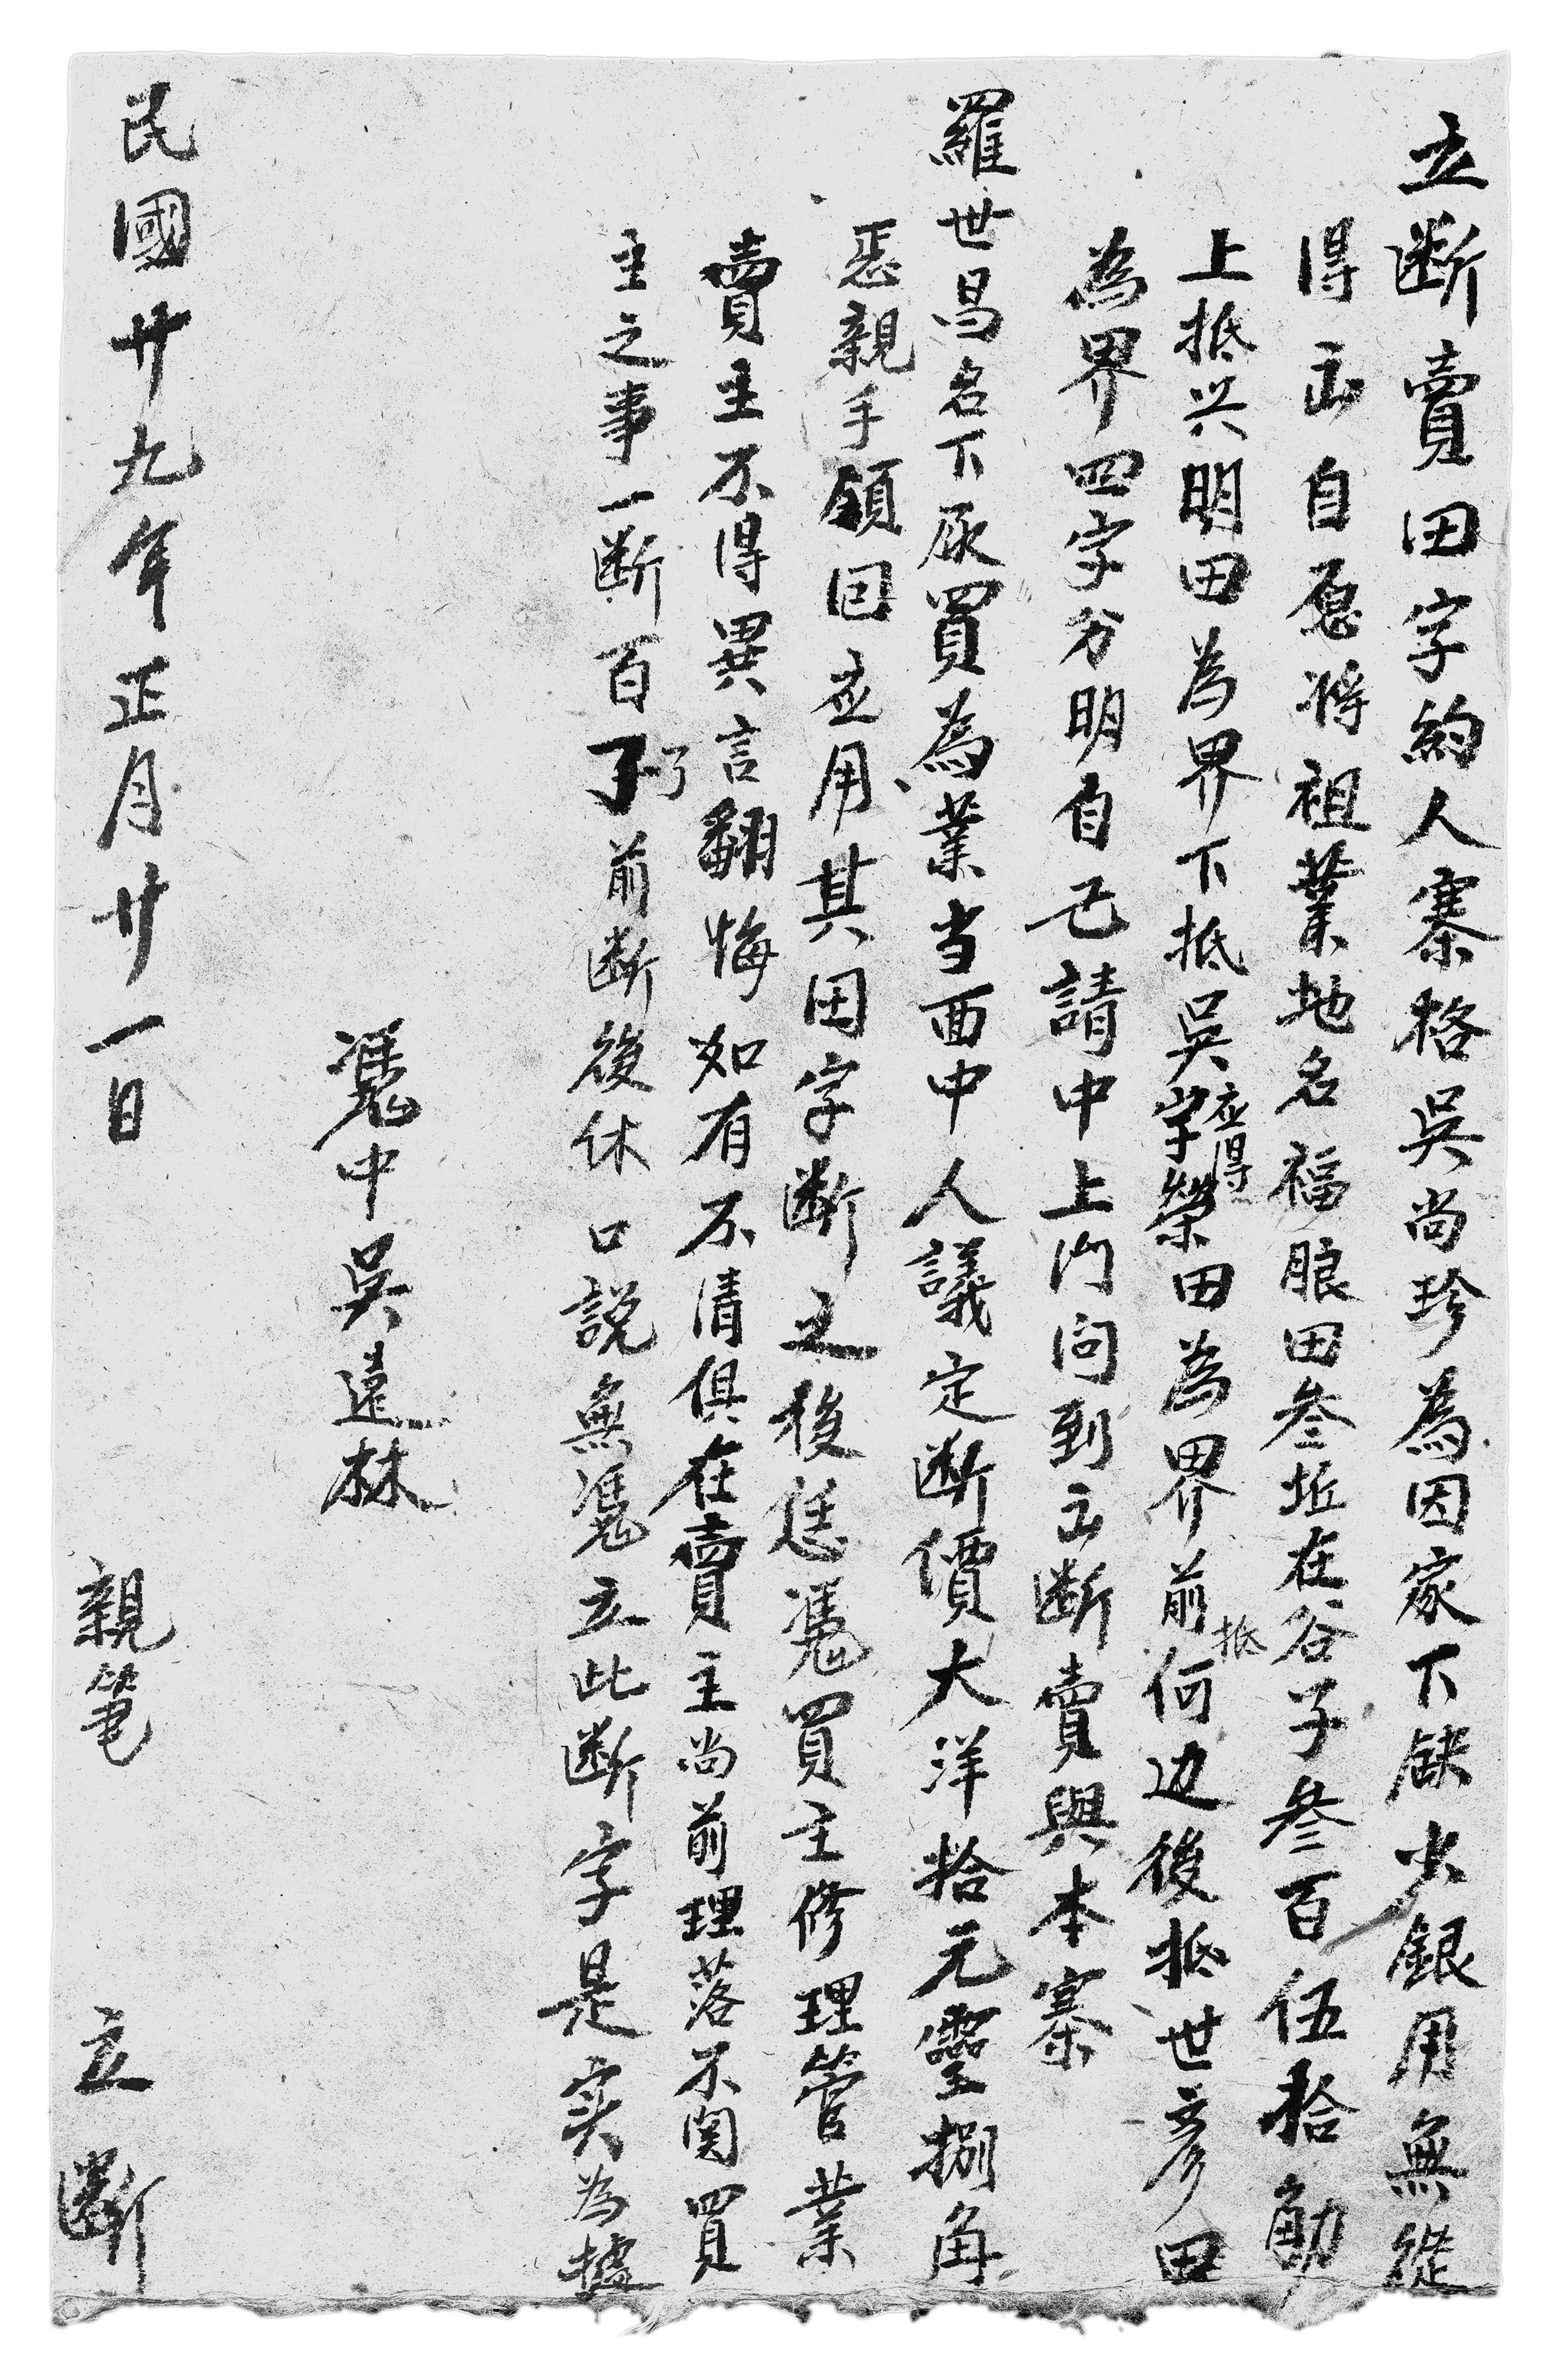 立断賣田字約人寨格吳尚珍為因家下缺少銀用無從
得出自愿将祖業地名福腺田叁坵在谷子叁百伍拾觔
上抵兴明田為界下抵吳字应得榮田為界前抵何边後抵世彦田
為界四字分明自己請中上门问到立断賣與本寨
羅世昌名下承買為業当面中人議定断價大洋拾元零捌角
恁親手領回应用其田字断之後恁凴買主修理管業
賣主不得異言翻悔如有不清俱在賣主尚前理落不関買
主之事一断百了了前断後休口説無凴立此断字是实為據
凴中吳遠林
民國廿九年正月廿一日 親筆 立断